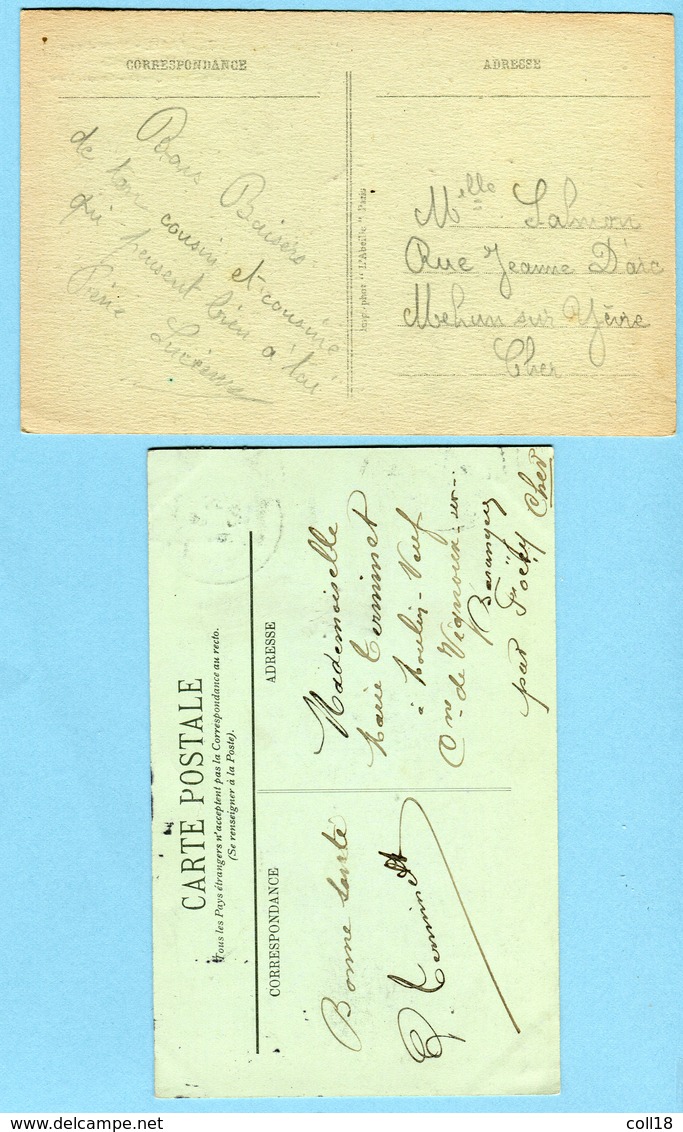 CORRESPONDANCE
ADRESSE
Bons Baisers
de ton cousin et cousine
qui pensent bien à toi
Lucienne
Imp.-phot "L'Abeille" Paris
Mlle Salmon
Rue Jeanne D'arc
Mehun sur Yèvre
Cher
CARTE POSTALE
Tous les Pays étrangers n'acceptent pas la Correspondance au recto.
(Se renseigner à la Poste).
CORRESPONDANCE
ADRESSE
Bonne santé
Terminet
Mademoiselle
Marie Terminet
à Moulin-Neuf
Cne de Vignoux-sur-
Barangeon
par Foëcy Cher
coll18